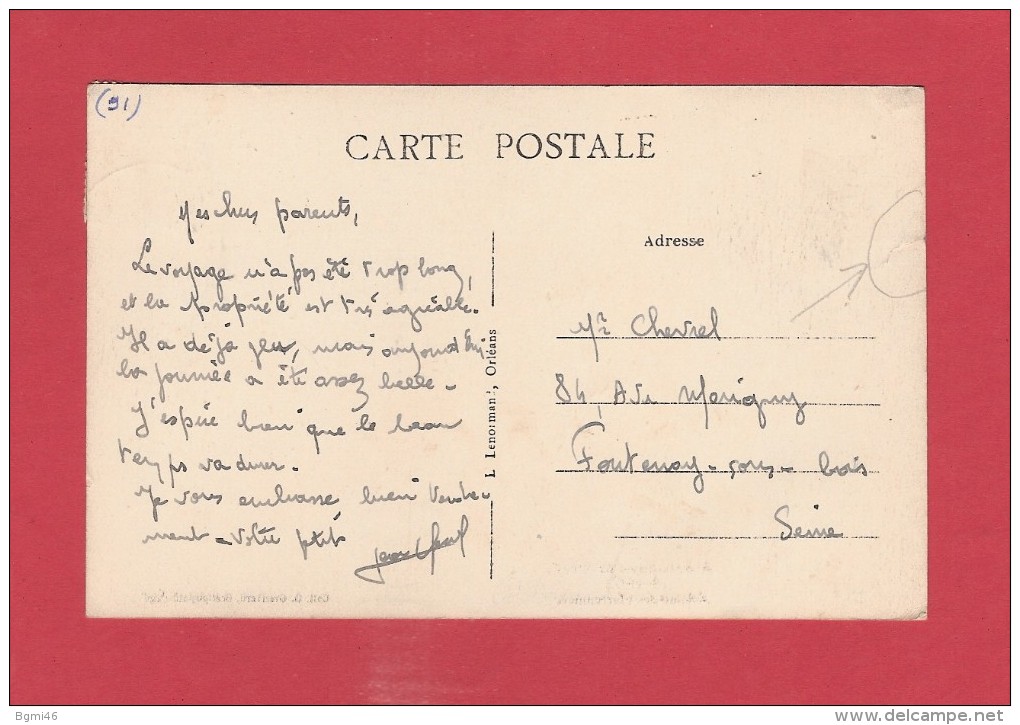 (91)
CARTE POSTALE
Mes chers parents,
Le voyage n'a pas été trop long,
et la propriété est très agréable.
Il a déjà plu, mais aujourd'hui
la journée a été assez belle.
J'espère bien que le beau
temps va durer.
Je vous embrasse bien tendre-
ment - Votre ptit
L. Lenormand, Orléans
Adresse
Mr Chevrel
84, Ave Marigny
Fontenay-sous-bois
Seine
Bgmi46
delcampe.net